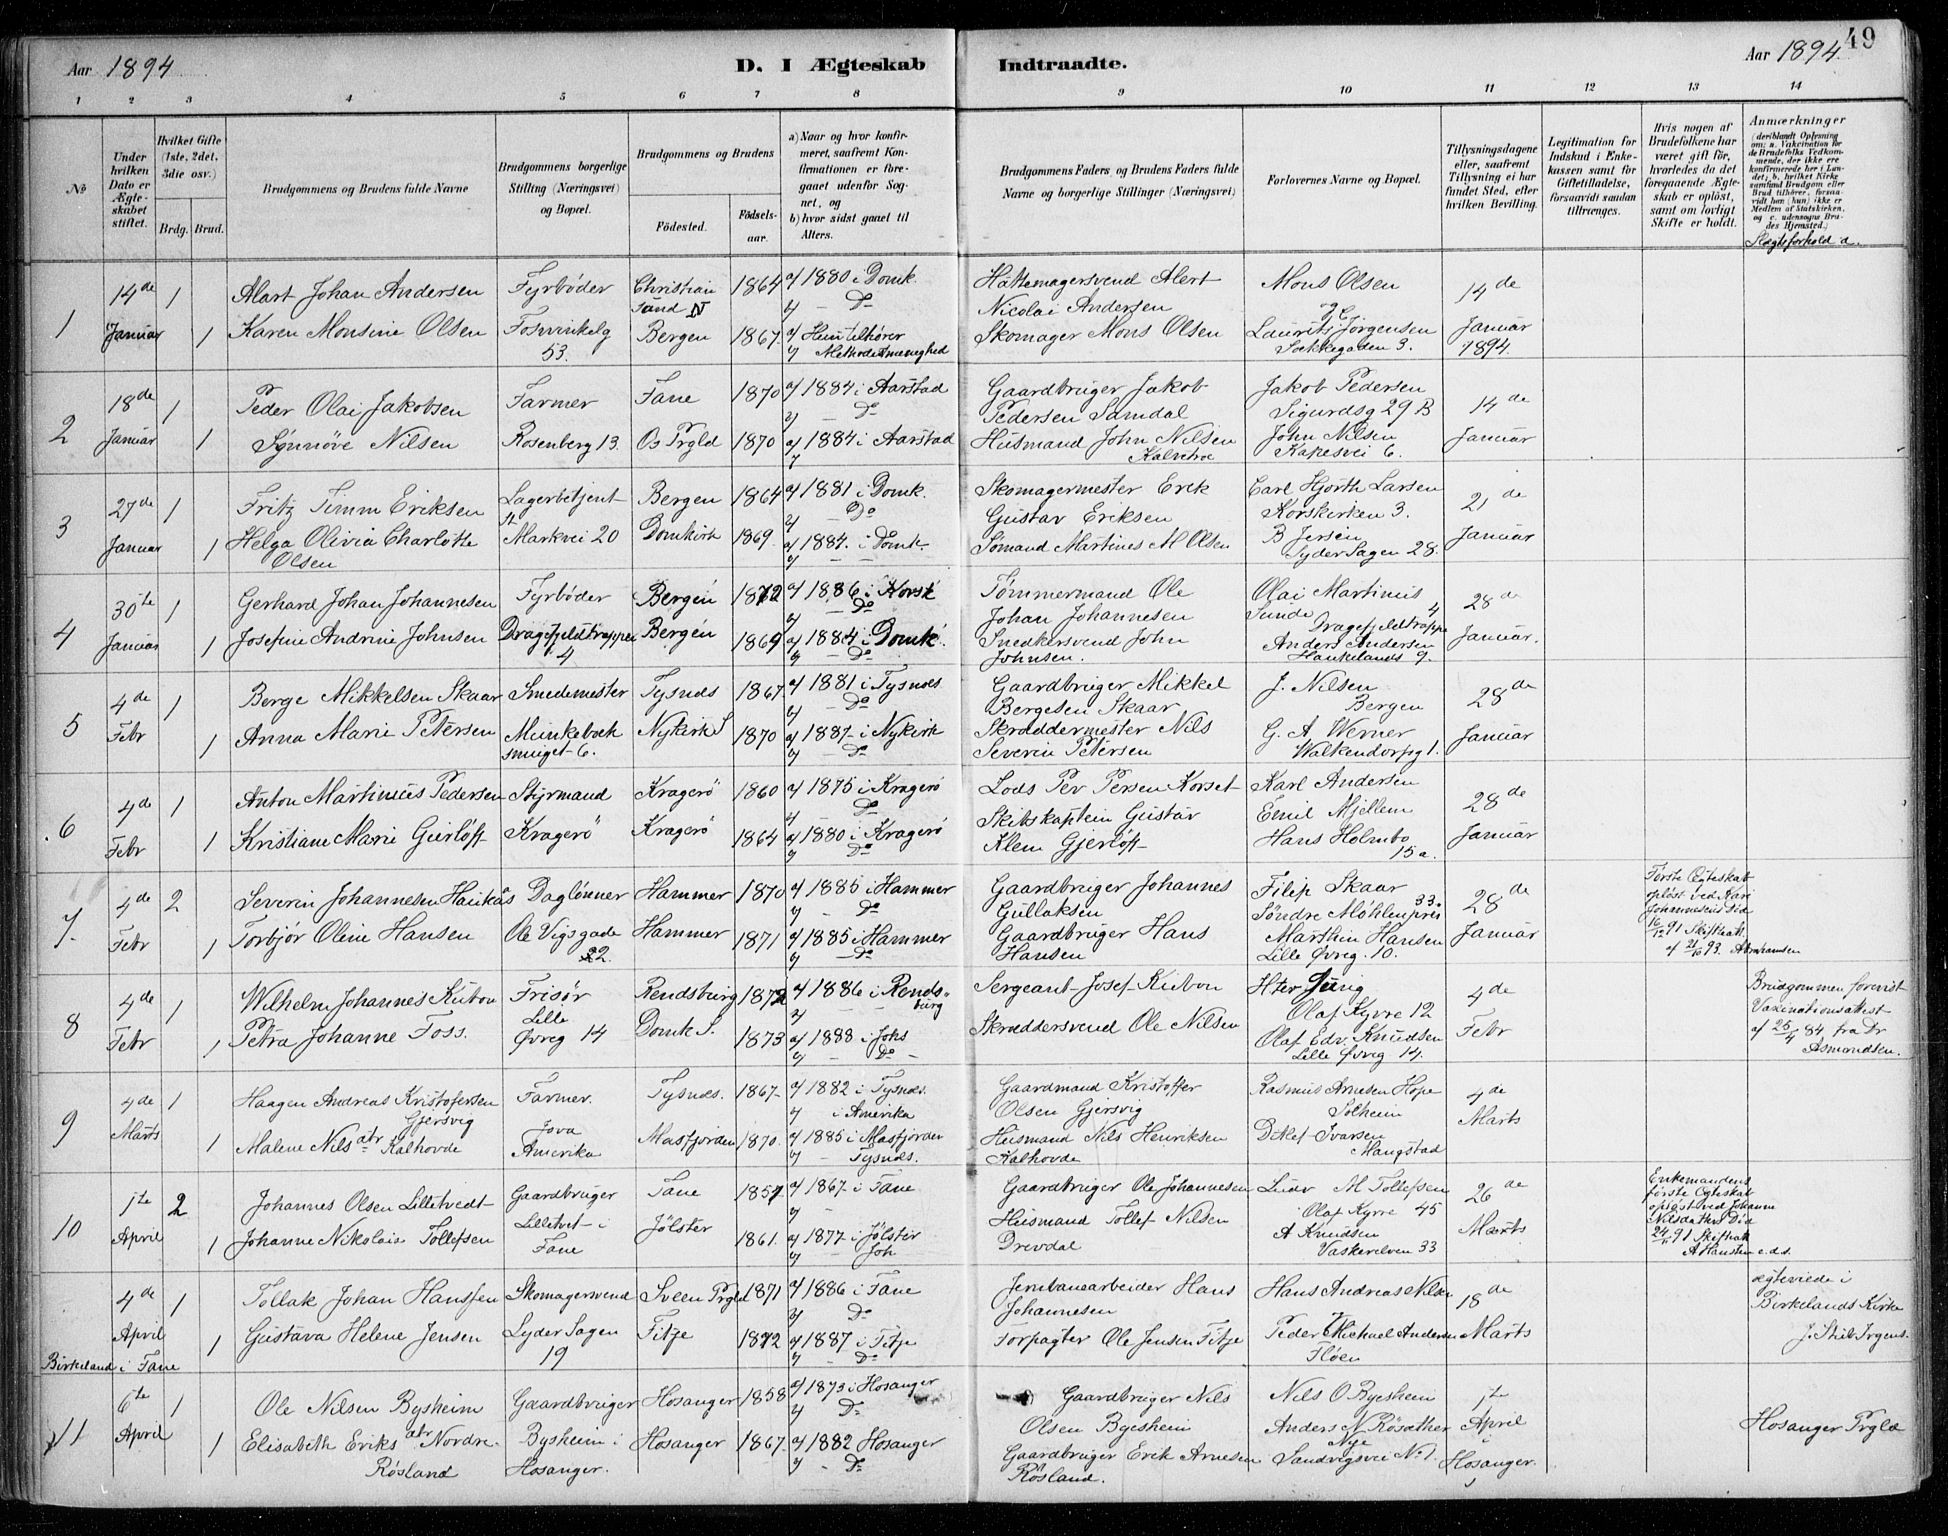 49
Aar 1894
D. I Ægteskab Indtraadte.
Aar 1894
1 2 3 4 5 6 7 8 9 10 11 12 13 14
№
Under hvilken Dato er Ægteskabet stiftet.
Hvilket Gifte (1ste, 2det, 3die osv.)
Brdg. Brud.
Brudgommens og Brudens fulde Navne
Brudgommens borgerlige Stilling (Næringsvei) og Bopæl.
Brudgommens og Brudens
Födested.
Födselsaar.
a) Naar og hvor konfirmeret, saafremt Konfirmationen er foregaaet udenfor Sognet, og
b) hvor sidst gaaet til Alters.
Brudgommens Faders og Brudens Faders fulde Navne og borgerlige Stillinger (Næringsvei)
Forlovernes Navne og Bopæl.
Tillysningsdagene eller, saafremt Tillysning ei har fundet Sted, efter hvilken Bevilling.
Legitimation for Indskud i Enkekassen samt for Giftetilladelse, forsaavidt saadan tiltrænges.
Hvis nogen af Brudefolkene har været gift för, hvorledes da det foregaaende Ægteskab er oplöst, samt om lovligt Skifte er holdt.
Anmærkninger
(deriblandt Oplysning om: a. Vakcination for de Brudefolks Vedkommende, der ikke ere konfirmerede her i Landet; b. hvilket Kirkesamfund Brudgom eller Brud tilhörer, forsaavidt han (hun) ikke er Medlem af Statskirken, og c. udensogns Brudes Hjemsted.)
Slægtsforhold d.
1
14de Januar
1
Alart Johan Andersen
Fyrbøder
Christiansund N
1864
a/ 1880 i Domk.
b/ - Do
Hattemagersvend Alert
Nicolai Andersen
Mons Olsen
14de
1
Karen Monsine Olsen
Fosvinkelg 53.
Bergen
1867
a/ Hun tilhører
b/ Methodistmenighed
Skomager Mons Olsen
og C
Laurits Jørgensen
Sækkegaden 3.
Januar 1894.
2
18de Januar
1
Peder Olai Jakobsen
Farmer
Fane
1870
a/ 1884 i Aarstad
b/ - Do
Gaardbruger Jakob
Pedersen Samdal
Jakob Pedersen
Sigurdsg 29 B
14de
1
Synnøve Nilsen
Rosenberg 13.
Os Prgld
1870
a/ 1884 i Aarstad
Husmand John Nilsen
Kalvetræ
John Nilsen
Kapesvei 6.
Januar
3
27de Januar
1
Fritz Timm Eriksen
Lagerbetjent
Bergen
1864
a/ 1881 i Domk.
b/ Do
Skomagermester Erik
Gustav Eriksen
Carl Hjorth Larsen
Korskirken 3.
21de
1
Helga Olivia Charlotte
Olsen
St Markvei 20
Domkirk
1869
a/ 1884. i Domk.
b/ - -
Sømand Martines M Olsen
B Jersin
Lyder Sagen 28.
Januar
4
30te Januar
1
Gerhard Johan Johannesen
Fyrbøder
Bergen
1872
a/ 1886 i Korsk
b/ Do
Tømmermand Ole
Johan Johannesen
Olai Martinus
Sunde
Dragefjeldtrappe 4
28de
1
Josefine Andrine Johnsen
Dragefjeldtrappen 4
Bergen
1869
a/ 1884 i Domk.
b/ - Do
Snedkersvend John
Johnsen.
Anders Andersen
Haukelands 9.
Januar.
5
4de Febr
1
Berge Mikkelsen Skaar
Smedemester
Tysnæs
1867
a/ 1881 i Tysnæs.
b/ - Do
Gaardbruger Mikkel
Bergesen Skaar
J. Nilsen
Bergen
28de
1
Anna Marie Petersen
Munkebæk
smuget 6.
Nykirk S
1870
a/ 1887 i Nykirk
b/ Do
Skræddermester Nils
Severin Petersen
G. A Werner
Walkendorpsg 1.
Januar
6
4de Febr
1
Anton Martinius Pedersen
Styrmand
Kragerö
1860
a/ 1875 i Kragerö
b/ Do
Lods Per Persen Korset
Karl Andersen
Emil Mjellem
28de
1
Kristiane Marie Gierløff
Kragerö
Kragerö
1864
a/ 1880 i Kragerö
b/ Do
Skibskaptein Gustav
Klem Gjerløff
Hans Holmbo
15 a.
Januar
7.
4de Febr
2
Severin Johannesen Haukås
Daglønner
Hammer
1870
a/ 1885 i Hammer
b/ - Do
Gaardbruger Johannes
Gullaksen
Filip Skaar
Søndre Møhlenpris 33.
28de
Første Ægteskab
opløst ved Kari
Johannesens Død
16/12 91 Skifteatt.
af 21/6 93. Abrahamsen
1
Torbjør Oline Hansen
Ole Vigsgade 22.
Hammer
1871
a/ 1885 i Hammer
b/ - Do
Gaardbruger Hans
Hansen
Marthin Hansen
Lille Øvreg. 10.
Januar
8
4de Febr
1
Wilhelm Johannes Kubon
Frisør
Rendsburg
1872
a/ 1886 i Rendsburg
b/
Sergeant Josef Kubon
Olaf Kyrre 12
4de
Brudgommen forevist
Vaxinationsattest
af 25/4 84 fra Dr
Asmundsen.
1
Petra Johanne Foss.
Lille Øvreg 14
Domk S.
1873
a/ 1888 i Johs
b/ - Do -
Skræddersvend Ole Nilsen
Olaf Edv. Knudsen
Lille Øvreg 14.
Febr
9
4de Marts
1
Haagen Andreas Kristofersen
Gjersvig
Farmer.
Tysnæs.
1867
a/ 1882 i Tysnæs.
b/ i Amerika
Gaardmand Kristoffer
Olsen Gjersvig
Rasmus Arnesen Hope
Solheim
4de
1
Malene Nilsdtr Kalhovde
Jova
Amerika
Masfjorden
1870.
a/ 1885 i Masfjorden
b/ - Tysnæs.
Husmand Nils Henriksen
Kalhovde
Ditlef Ivarsen
Haugstad
Marts
10
1te April
2
Johannes Olsen Lilletvedt
Gaardbruger
Fane
1851
a/ 1867 i Fane
b/ -
Gaardbruger Ole Johannesen
Ludv M Tollefsen
Olaf Kyrre 45
26de
Enkemandens
første Ægteskab
opløst ved Johanne
Nilsdatters Død
24/11 91 Skifteatt.
A Hansten e.d.s.
1
Johanne Nikolaia Tollefsen
Lilletvet i
Fane
Jølster
1861.
a/ 1877 i Jølster
b/ - Joh
Husmand Tollef Nilsen
Drevdal
A Knudsen
Vaskerelven 33
Marts
4de April
Birkeland i Fane
1
Tollak Johan Hanssen
Skomagersvend
Sveen Prgld
1871
a/ 1886 i Fane
b/ Do
Jernbanearbeider Hans
Johannesen
Hans Andreas Nilsen
18de
ægteviede i
Birkelands Kirke
J. Stub Irgens.
1
Gustava Helene Jensen
Lyder Sagen
19
Fitje
1872
a/ 1887 i Fitje
b/ - Do
Forpagter Ole Jensen Fitje
Peder Michael Andersen
Fløen
Marts
11
6te April
1
Ole Nilsen Bysheim
Gaardbruger
Hosanger
1858
a/ 1873 i Hosanger
b/ Do
Gaardbruger Nils
Olsen Byesheim
Nils O Byesheim
1te
Hosanger Prgld
1
Elisabeth Eriksdtr Nordre
Røsland
Bysheim i
Hosanger.
Hosanger
1867
a/ 1882 Hosanger
b/ - Do
Gaardbruger Erik Arnesen
Røsland.
Anders N Røsæther
Nye
Sandvigsvei No 1.
April
i
Hosanger.